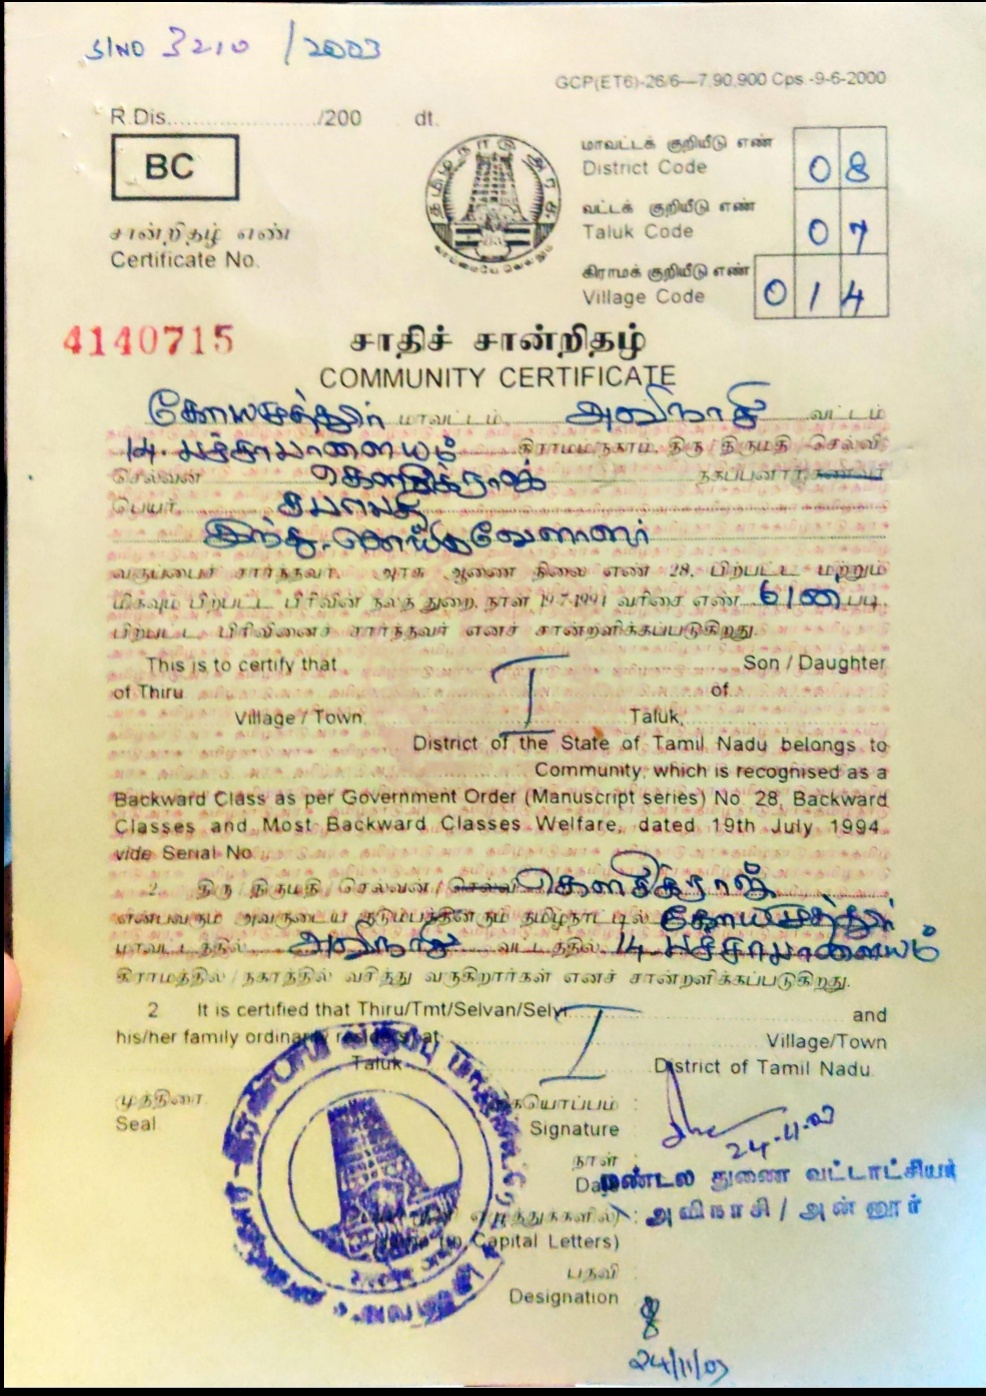 S/NO 3210 / 2003
GCP(ET6)-26/6—7,90,900 Cps.-9-6-2000
R.Dis. /200 dt.
BC
தமிழ்நாடு அரசு
வாய்மையே வெல்லும்
மாவட்டக் குறியீடு எண்
District Code 08
வட்டக் குறியீடு எண்
Taluk Code 07
கிராமக் குறியீடு எண்
Village Code 014
சான்றிதழ் எண்
Certificate No.
4140715
சாதிச் சான்றிதழ்
COMMUNITY CERTIFICATE
கோயமுத்தூர் மாவட்டம், அவிநாசி வட்டம்
14. பச்சாபாளையம் கிராமம்/நகரம், திரு/திருமதி/செல்வி
செல்வன் கௌசிக்ராஜ் தகப்பனார்/கணவர்
பெயர் சபாபதி
இந்து.
வகுப்பைச் சார்ந்தவர். அரசு ஆணை நிலை எண் 28, பிற்பட்ட மற்றும்
மிகவும் பிற்பட்ட பிரிவின் நலத் துறை, நாள் 19-7-1994 வரிசை எண் படி
பிற்பட்ட பிரிவினைச் சார்ந்தவர் எனச் சான்றளிக்கப்படுகிறது.
This is to certify that Son / Daughter
of Thiru of
Village / Town Taluk,
District of the State of Tamil Nadu belongs to
Community, which is recognised as a
Backward Class as per Government Order (Manuscript series) No. 28, Backward
Classes and Most Backward Classes Welfare, dated 19th July 1994
vide Serial No.
2. திரு/திருமதி/செல்வன்/செல்வி கௌசிக்ராஜ்
என்பவரும் அவருடைய குடும்பத்தினரும் தமிழ்நாட்டில் கோயமுத்தூர்
மாவட்டத்தில் அவிநாசி வட்டத்தில், 14. பச்சாபாளையம்
கிராமத்தில்/நகரத்தில் வசித்து வருகிறார்கள் எனச் சான்றளிக்கப்படுகிறது.
2 It is certified that Thiru/Tmt/Selvan/Selvi and
his/her family ordinarily reside at Village/Town
Taluk District of Tamil Nadu.
முத்திரை
Seal
கையொப்பம் :
Signature
24-11-03
நாள்
Date
மண்டல துணை வட்டாட்சியர்
அவிநாசி / அன்னூர்
எழுத்துக்களில்) :
Capital Letters)
பதவி
Designation
24/11/03